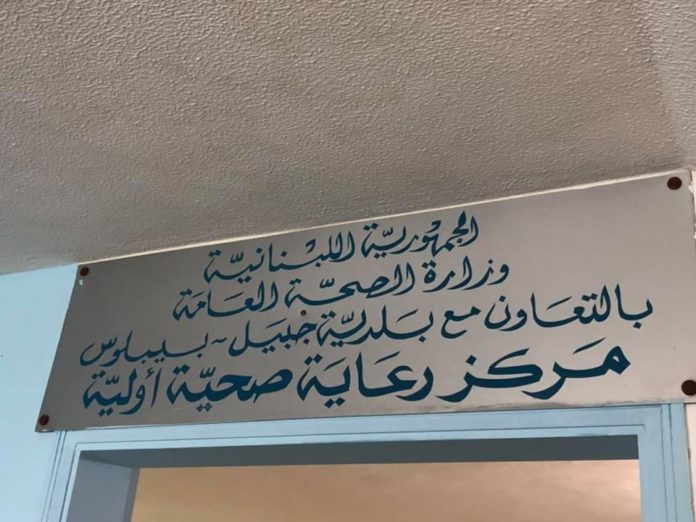 الجمهوريّة اللبنانيّة
وزارة الصحّة العامّة
بالتعاون مع بلديّة جبيل - بيبلوس
مركز رعاية صحيّة أوليّة